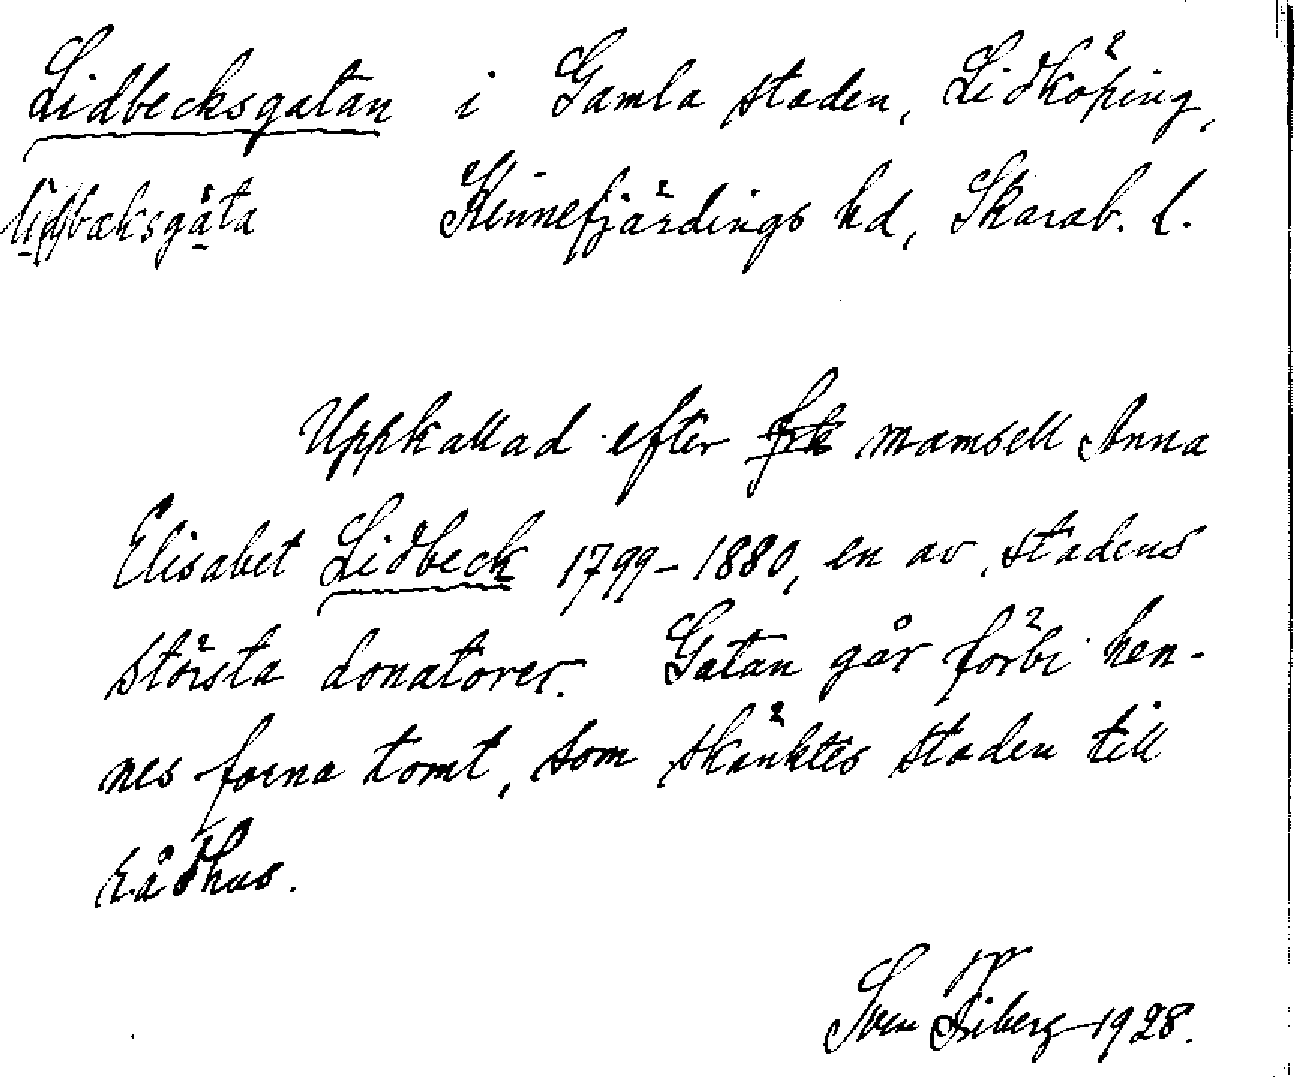 Lidbecksgatan i Gamla staden, Lidköping,
Kinnefjärdings hd, Skarab. l.
Uppkallad efter frk mamsell Anna
Elisabet Lidbeck 1799-1880, en av stadens
största donatorer. Gatan går förbi hen-
nes forna tomt, som skänktes staden till
rådhus.
Sven 1928.